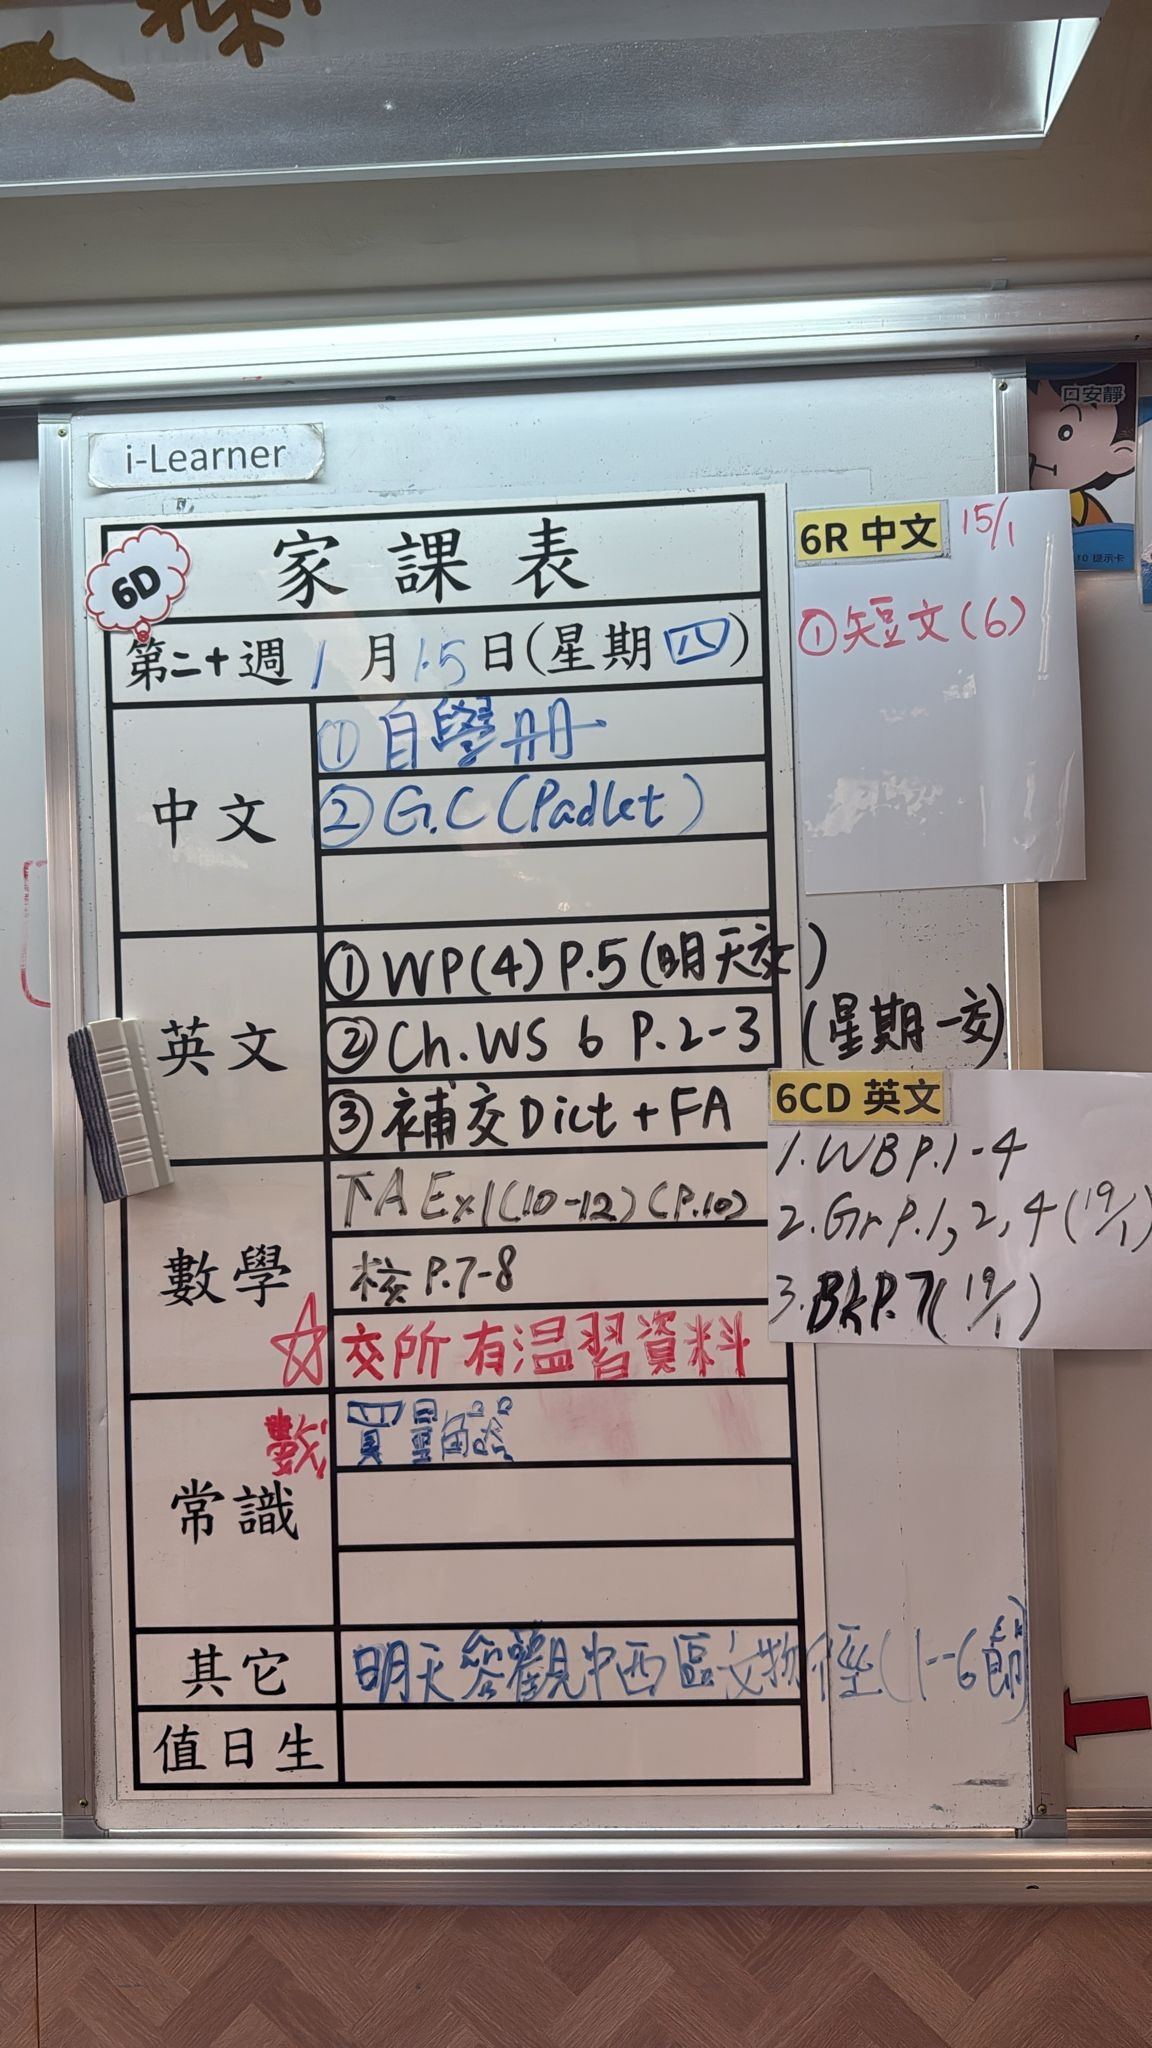 i-Learner
口安靜
10 提示卡
6D
家課表
第二十週 1月15日(星期四)
中文
① 自學冊
② G.C (Padlet)
英文
① WP(4) P.5 (明天交)
② Ch.WS 6 P.2-3 (星期一交)
③ 補交 Dict + FA
數學
下A Ex1(10-12) (P.10)
核 P.7-8
☆ 交所有温習資料
數
常識
買量
其它
明天參觀中西區文物徑(1-6節)
值日生
6R 中文 15/1
① 短文(6)
6CD 英文
1. WB P.1-4
2. Gr P.1, 2, 4 (19/1)
3. BK P.7 (19/1)